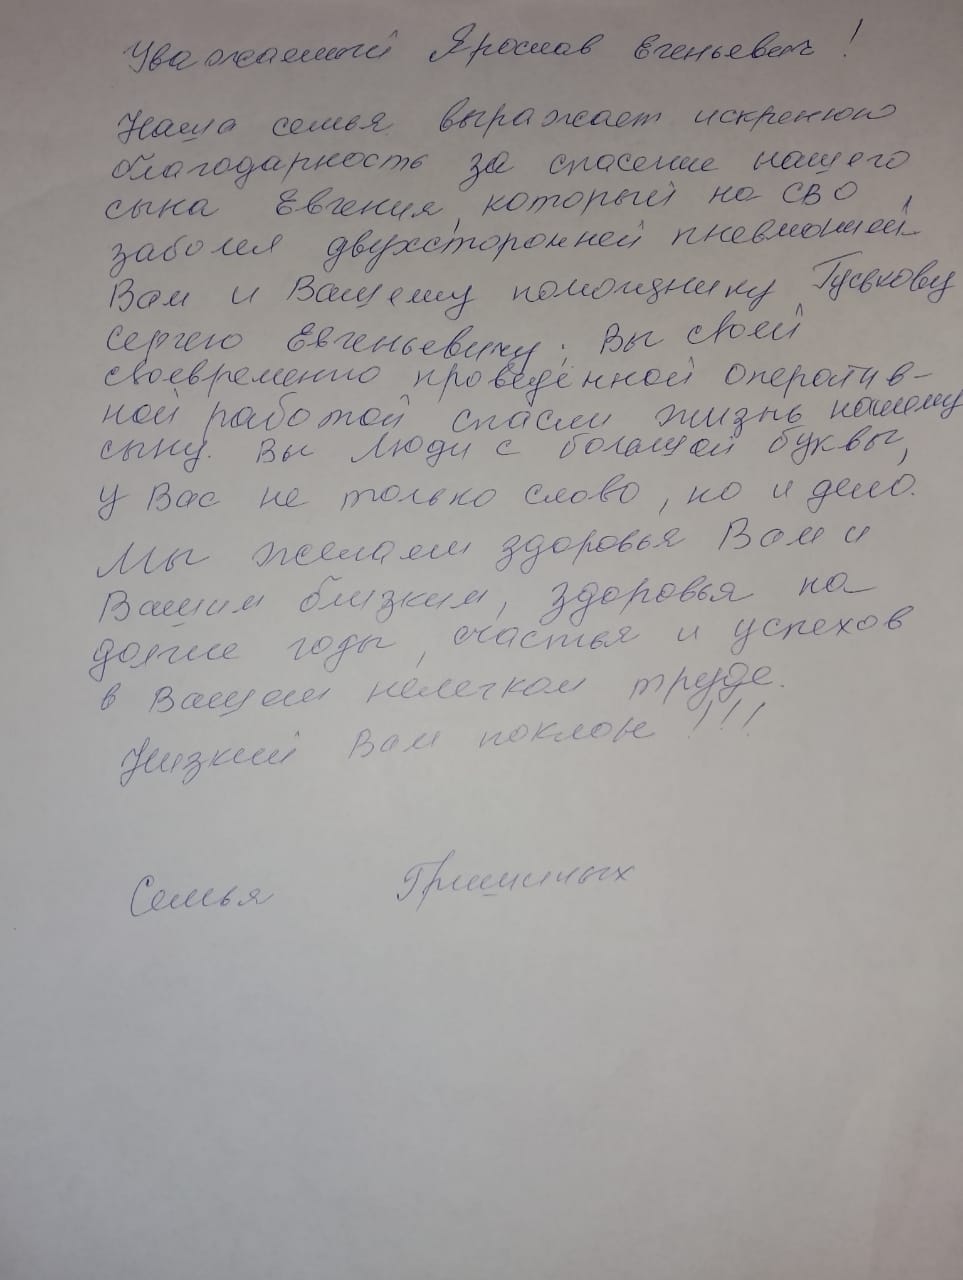 Уважаемый Ярослав Евгеньевич!
Наша семья выражает искренюю
благодарность за спасение нашего
сына Евгения, который на СВО,
заболел двухсторонней пневмонией
Вам и Вашему помощнику Гуськову
Сергею Евгеньевичу. Вы своей
своевременно проведённой оператив-
ной работой спасли жизнь нашему
сыну. Вы Люди с большой буквы,
у Вас не только слово, но и дело.
Мы желаем здоровья Вам и
Вашим близким, здоровья на
долгие годы, счастья и успехов
в Вашем нелегком труде.
Низкий Вам поклон!!!
Семья Гришиных